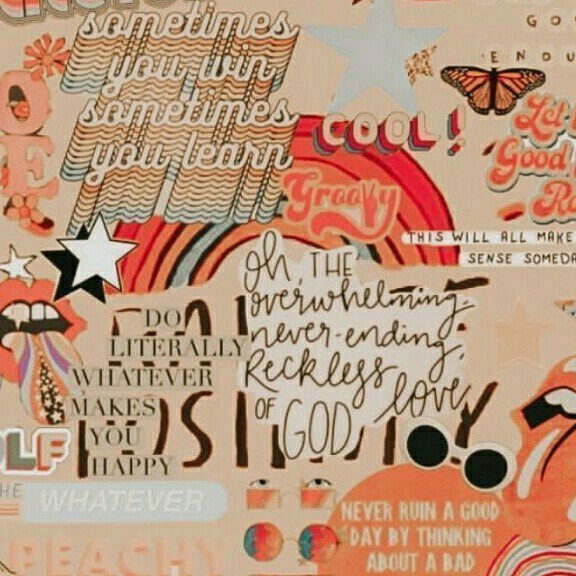 sometimes
you win
sometimes
you learn
GOO
ENOU
COOL!
Let
Good
Ro
Groovy
THIS WILL ALL MAKE
SENSE SOMEDA
oh, THE
overwhelming,
never-ending,
Reckless
OF GOD love
DO
LITERALLY
WHATEVER
MAKES
YOU
HAPPY
OLF
HE
WHATEVER
BEACHY
NEVER RUIN A GOOD
DAY BY THINKING
ABOUT A BAD